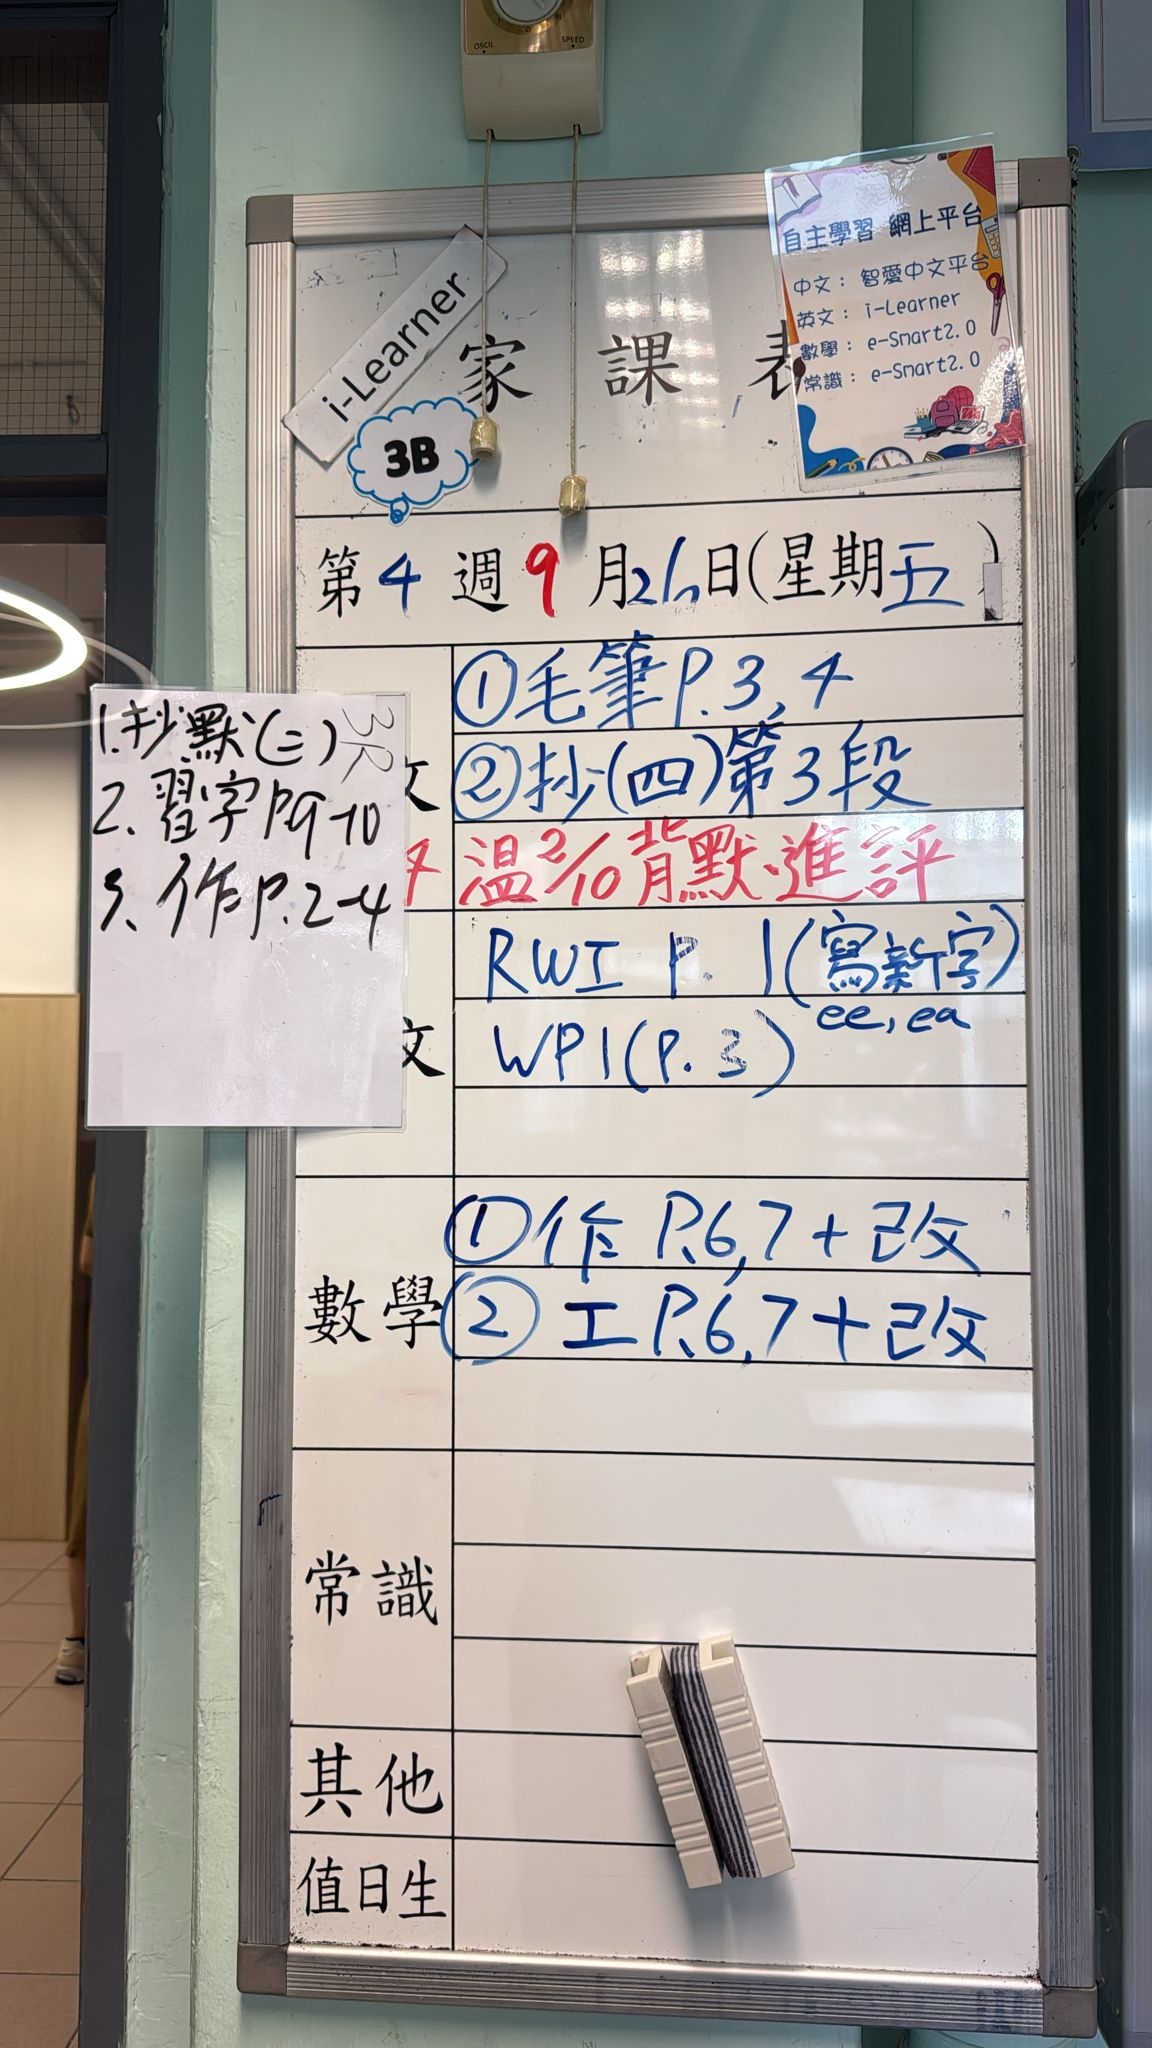 OSCIL SPEED
自主學習 網上平台
中文： 智愛中文平台
英文： i-Learner
數學： e-Smart2.0
常識： e-Smart2.0
i-Learner
家課表
3B
第4週9月26日(星期五)
文
①毛筆P.3,4
②抄(四)第3段
溫2/10背默、進評
3R
1.抄默(二)
2、習字P9-10
3、作P.2-4
文
RWI P.1(寫新字)
ee,ea
WP1(P.3)
數學
①作P.6,7+改
②工P.6,7+改
常識
其他
值日生